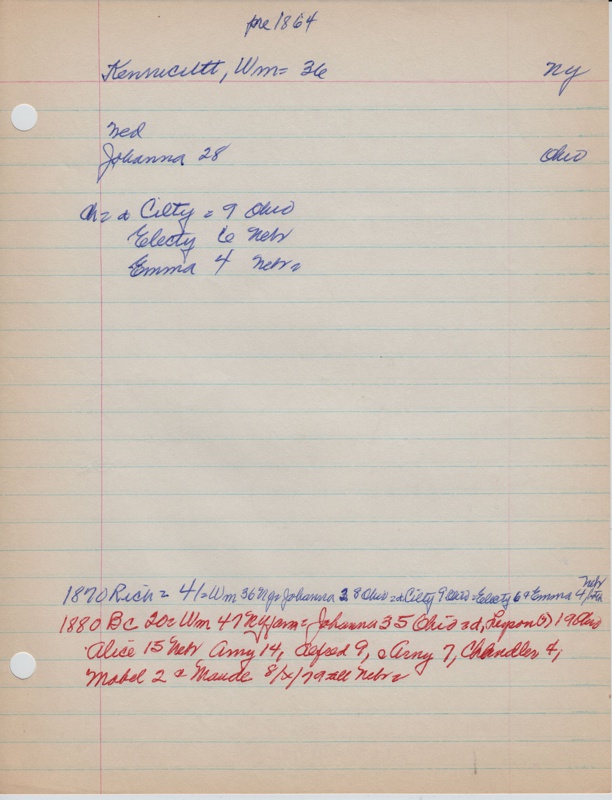 pre 1864
Kennicutt, Wm = 36 NY
Wed
Johanna 28 Ohio
Ch = d Cilty = 9 Ohio
Electy 6 Nebr
Emma 4 Nebr =
1870 Rich = 41 = Wm 36 NY = Johanna 28 Ohio = d Cilty 9 Ohio = Electy 6 & Emma 4 Nebr
1880 BC 20 = Wm 47 NY farm = Johanna 35 Ohio = d, (?) 19 Ohio
Alice 15 Nebr Amy 14, 9, Arny 7, Chandler 4,
Mabel 2 & Maude 8/x/79 all Nebr =